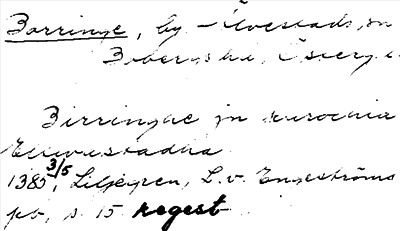 Borringe, by i Älvestads sn
Bobergs hd, Östergö
Birringne in parochia
Ellivustadha
1385 3/5, Liljegren, L. v. Engeströms
pb, s. 15 regest